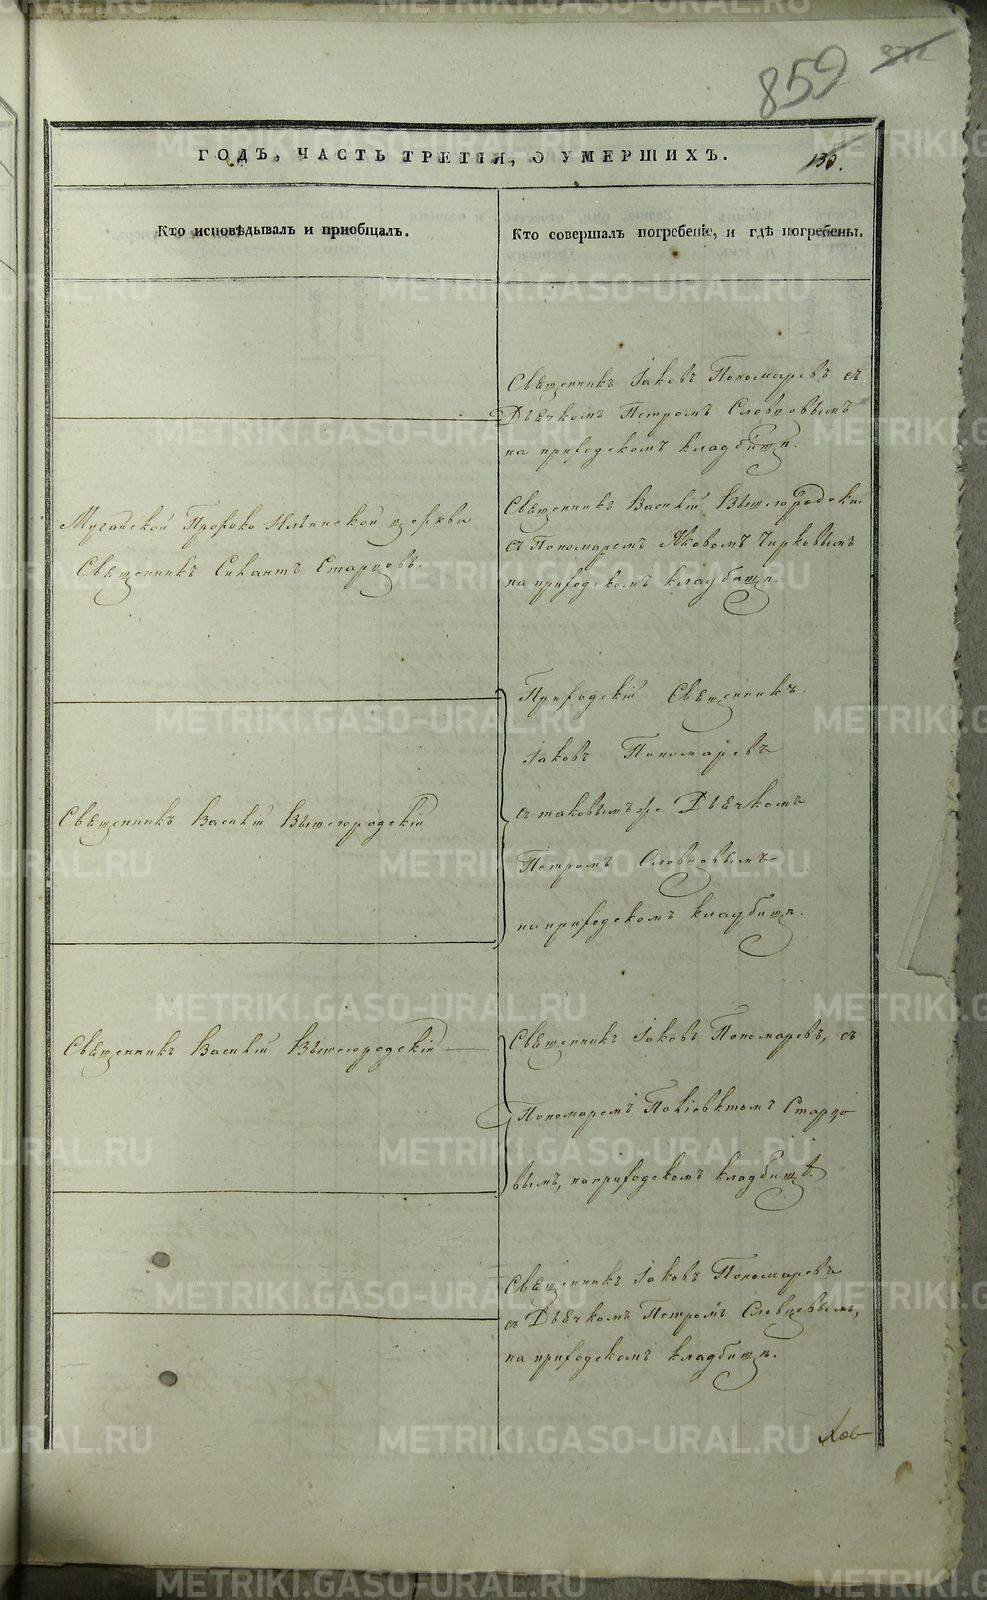 859
ГОДЪ, ЧАСТЬ ТРЕТІЯ, О УМЕРШИХЪ.
130.
Кто исповѣдывалъ и пріобщалъ.
Кто совершалъ погребеніе, и гдѣ погребены.
Священникъ Іаковъ Пономаревъ съ
Дьячкомъ Петромъ Словцовымъ
на приходскомъ кладбищѣ.
Мугайской Пророко Ильинской церкви
Священникъ Старцовъ.
Священникъ Василій Вышегородскій
съ Пономаремъ Яковомъ Чирковымъ
на приходскомъ кладбищѣ.
Приходскій Священникъ
Іаковъ Пономаревъ
съ таковымъ же Дьячкомъ
Петромъ Словцовымъ
на приходскомъ кладбищѣ.
Священникъ Василій Вышегородскій
Священникъ Василій Вышегородскій
Священникъ Іаковъ Пономаревъ, съ
Пономаремъ Старцо
вымъ, на приходскомъ кладбищѣ.
Священникъ Іаковъ Пономаревъ
съ Дьячкомъ Петромъ Словцовымъ,
на приходскомъ кладбищѣ.
METRIKI.GASO-URAL.RU